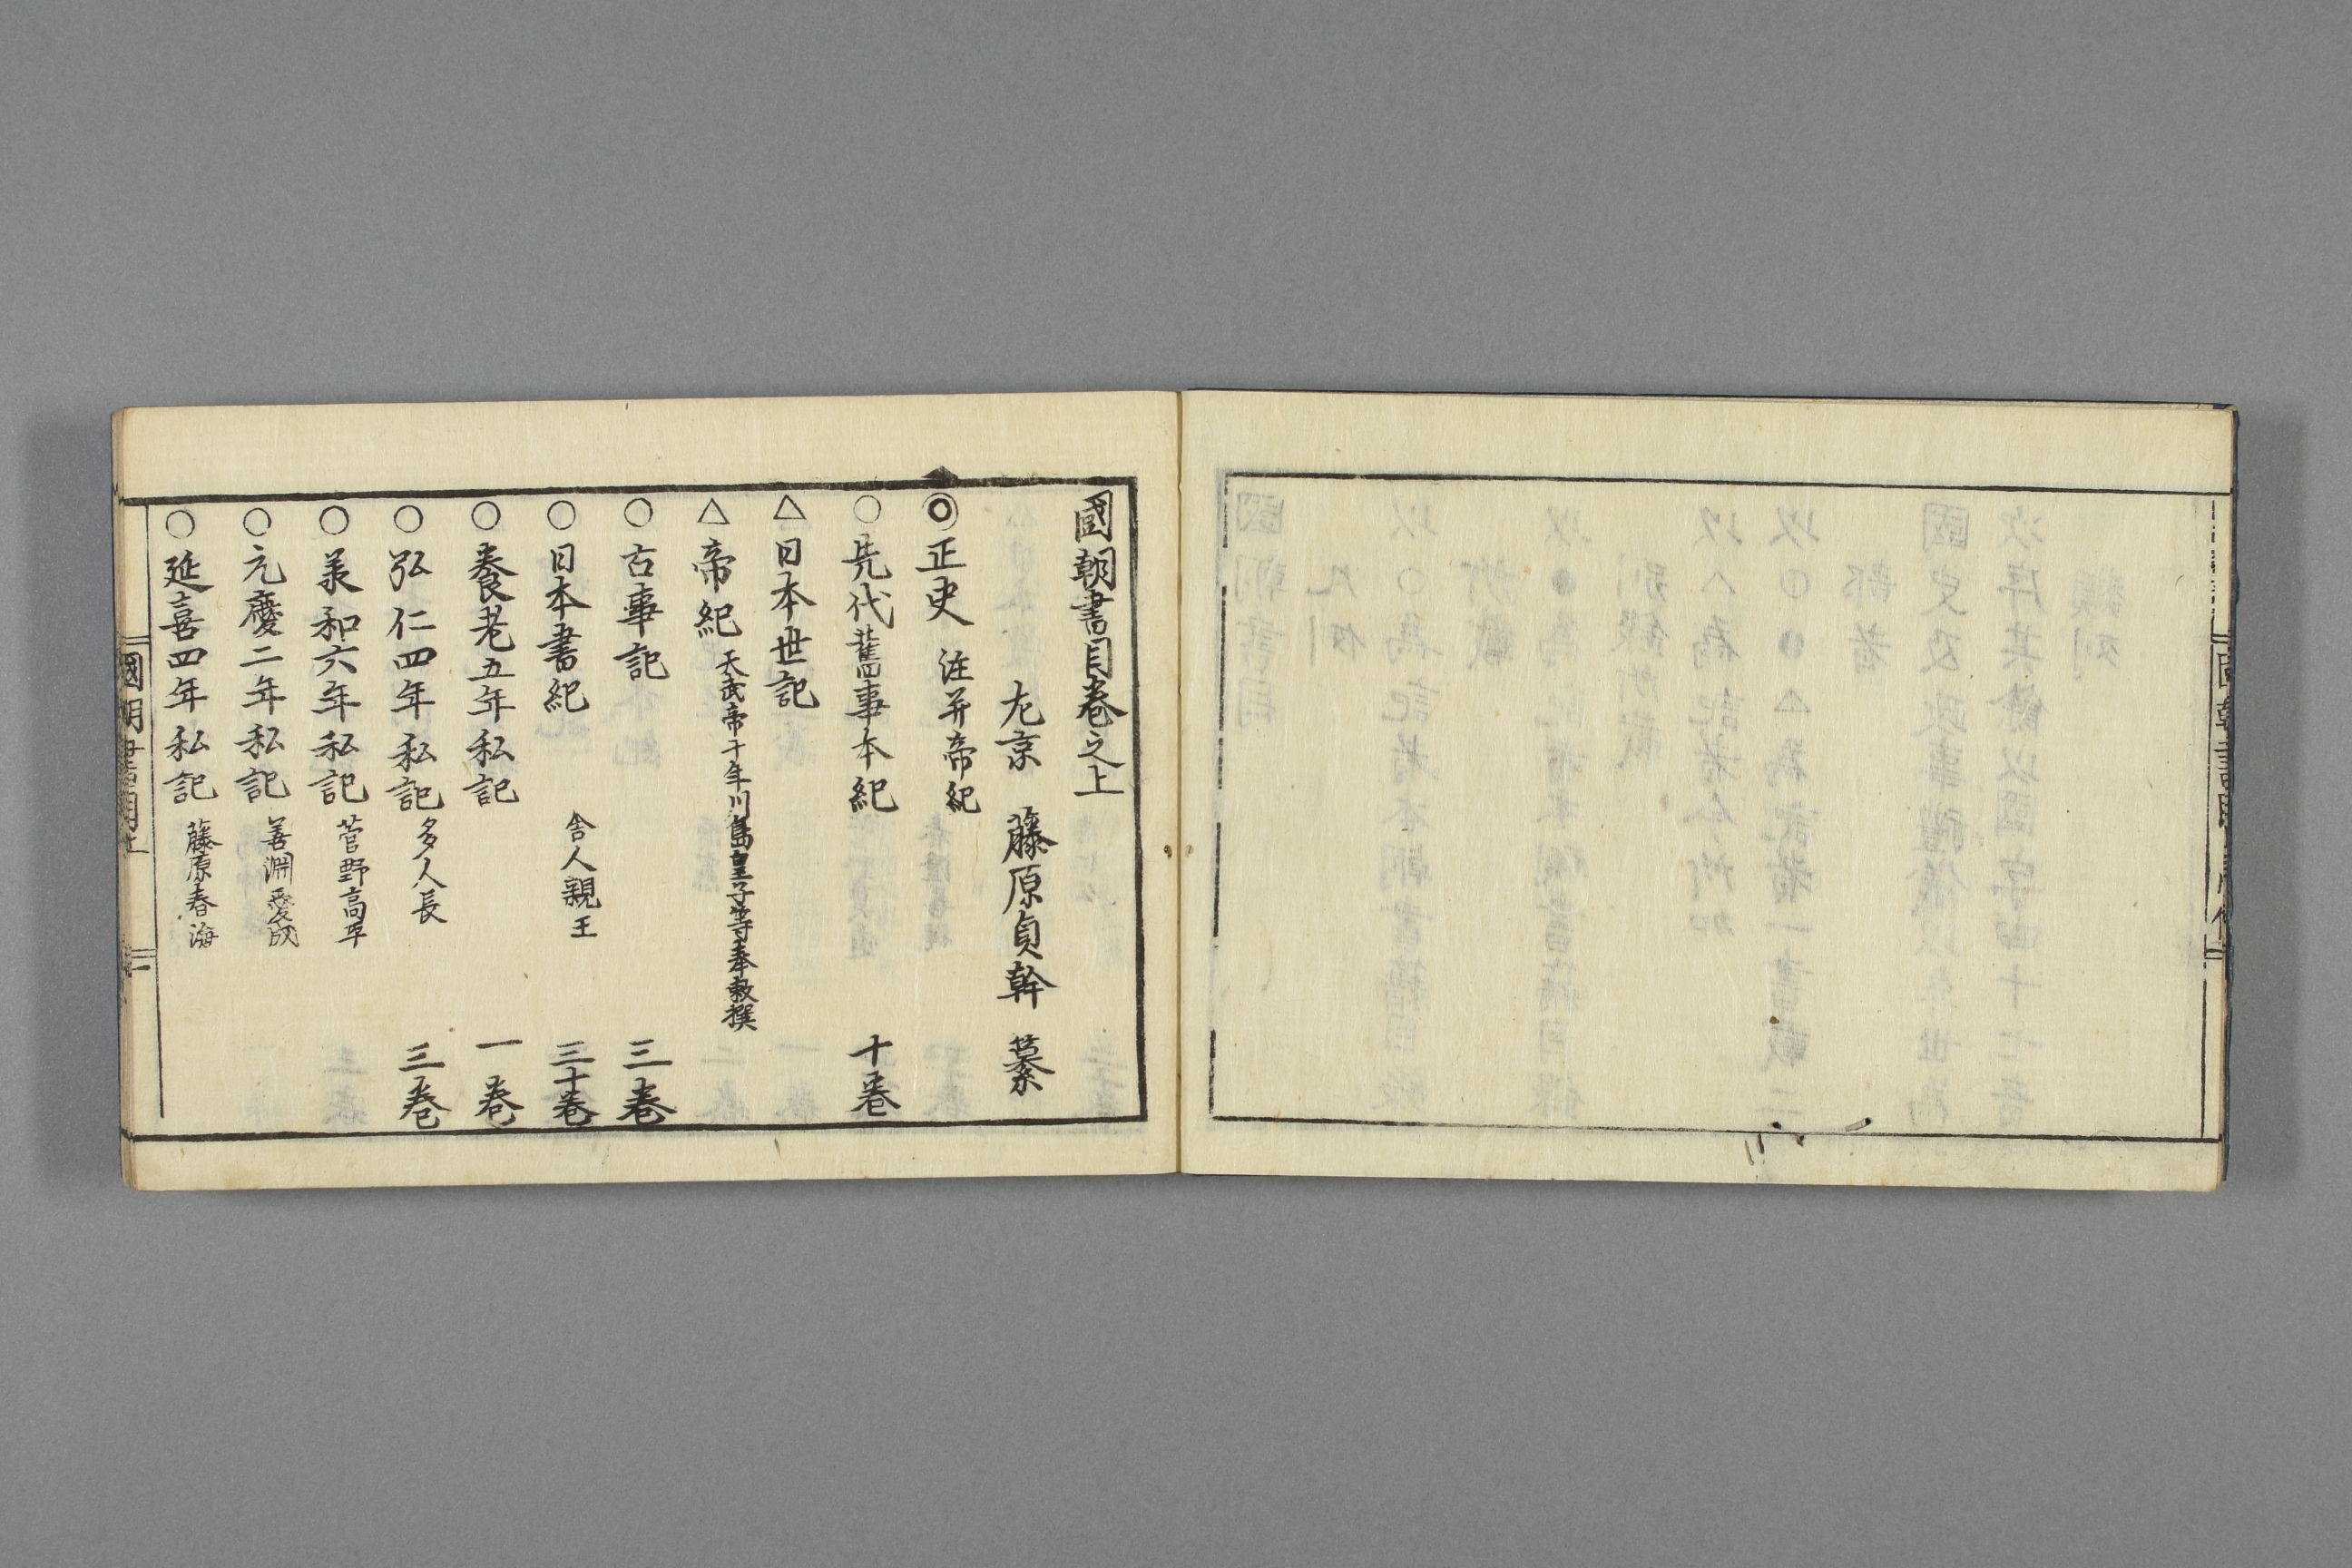 國朝書目卷之上
左京 藤原貞幹 纂
◎正史 注并帝紀
○先代舊事本紀 十卷
△日本世記
△帝紀 天武帝十年川島皇子等奉敕撰
○古事記 三卷
○日本書紀 舎人親王 三十卷
○養老五年私記 一卷
○弘仁四年私記 多人長 三卷
○承和六年私記 菅野高年
○元慶二年私記 善淵愛成
○延喜四年私記 藤原春海